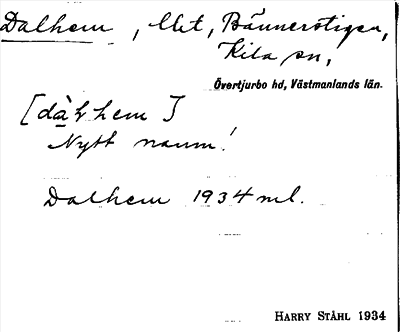 Dalhem, lht, Bännerstigen,
Kila sn,
Övertjurbo hd, Västmanlands län.
[dàlhem]
Nytt namn!
Dalhem 1934 ml.
HARRY STÅHL 1934